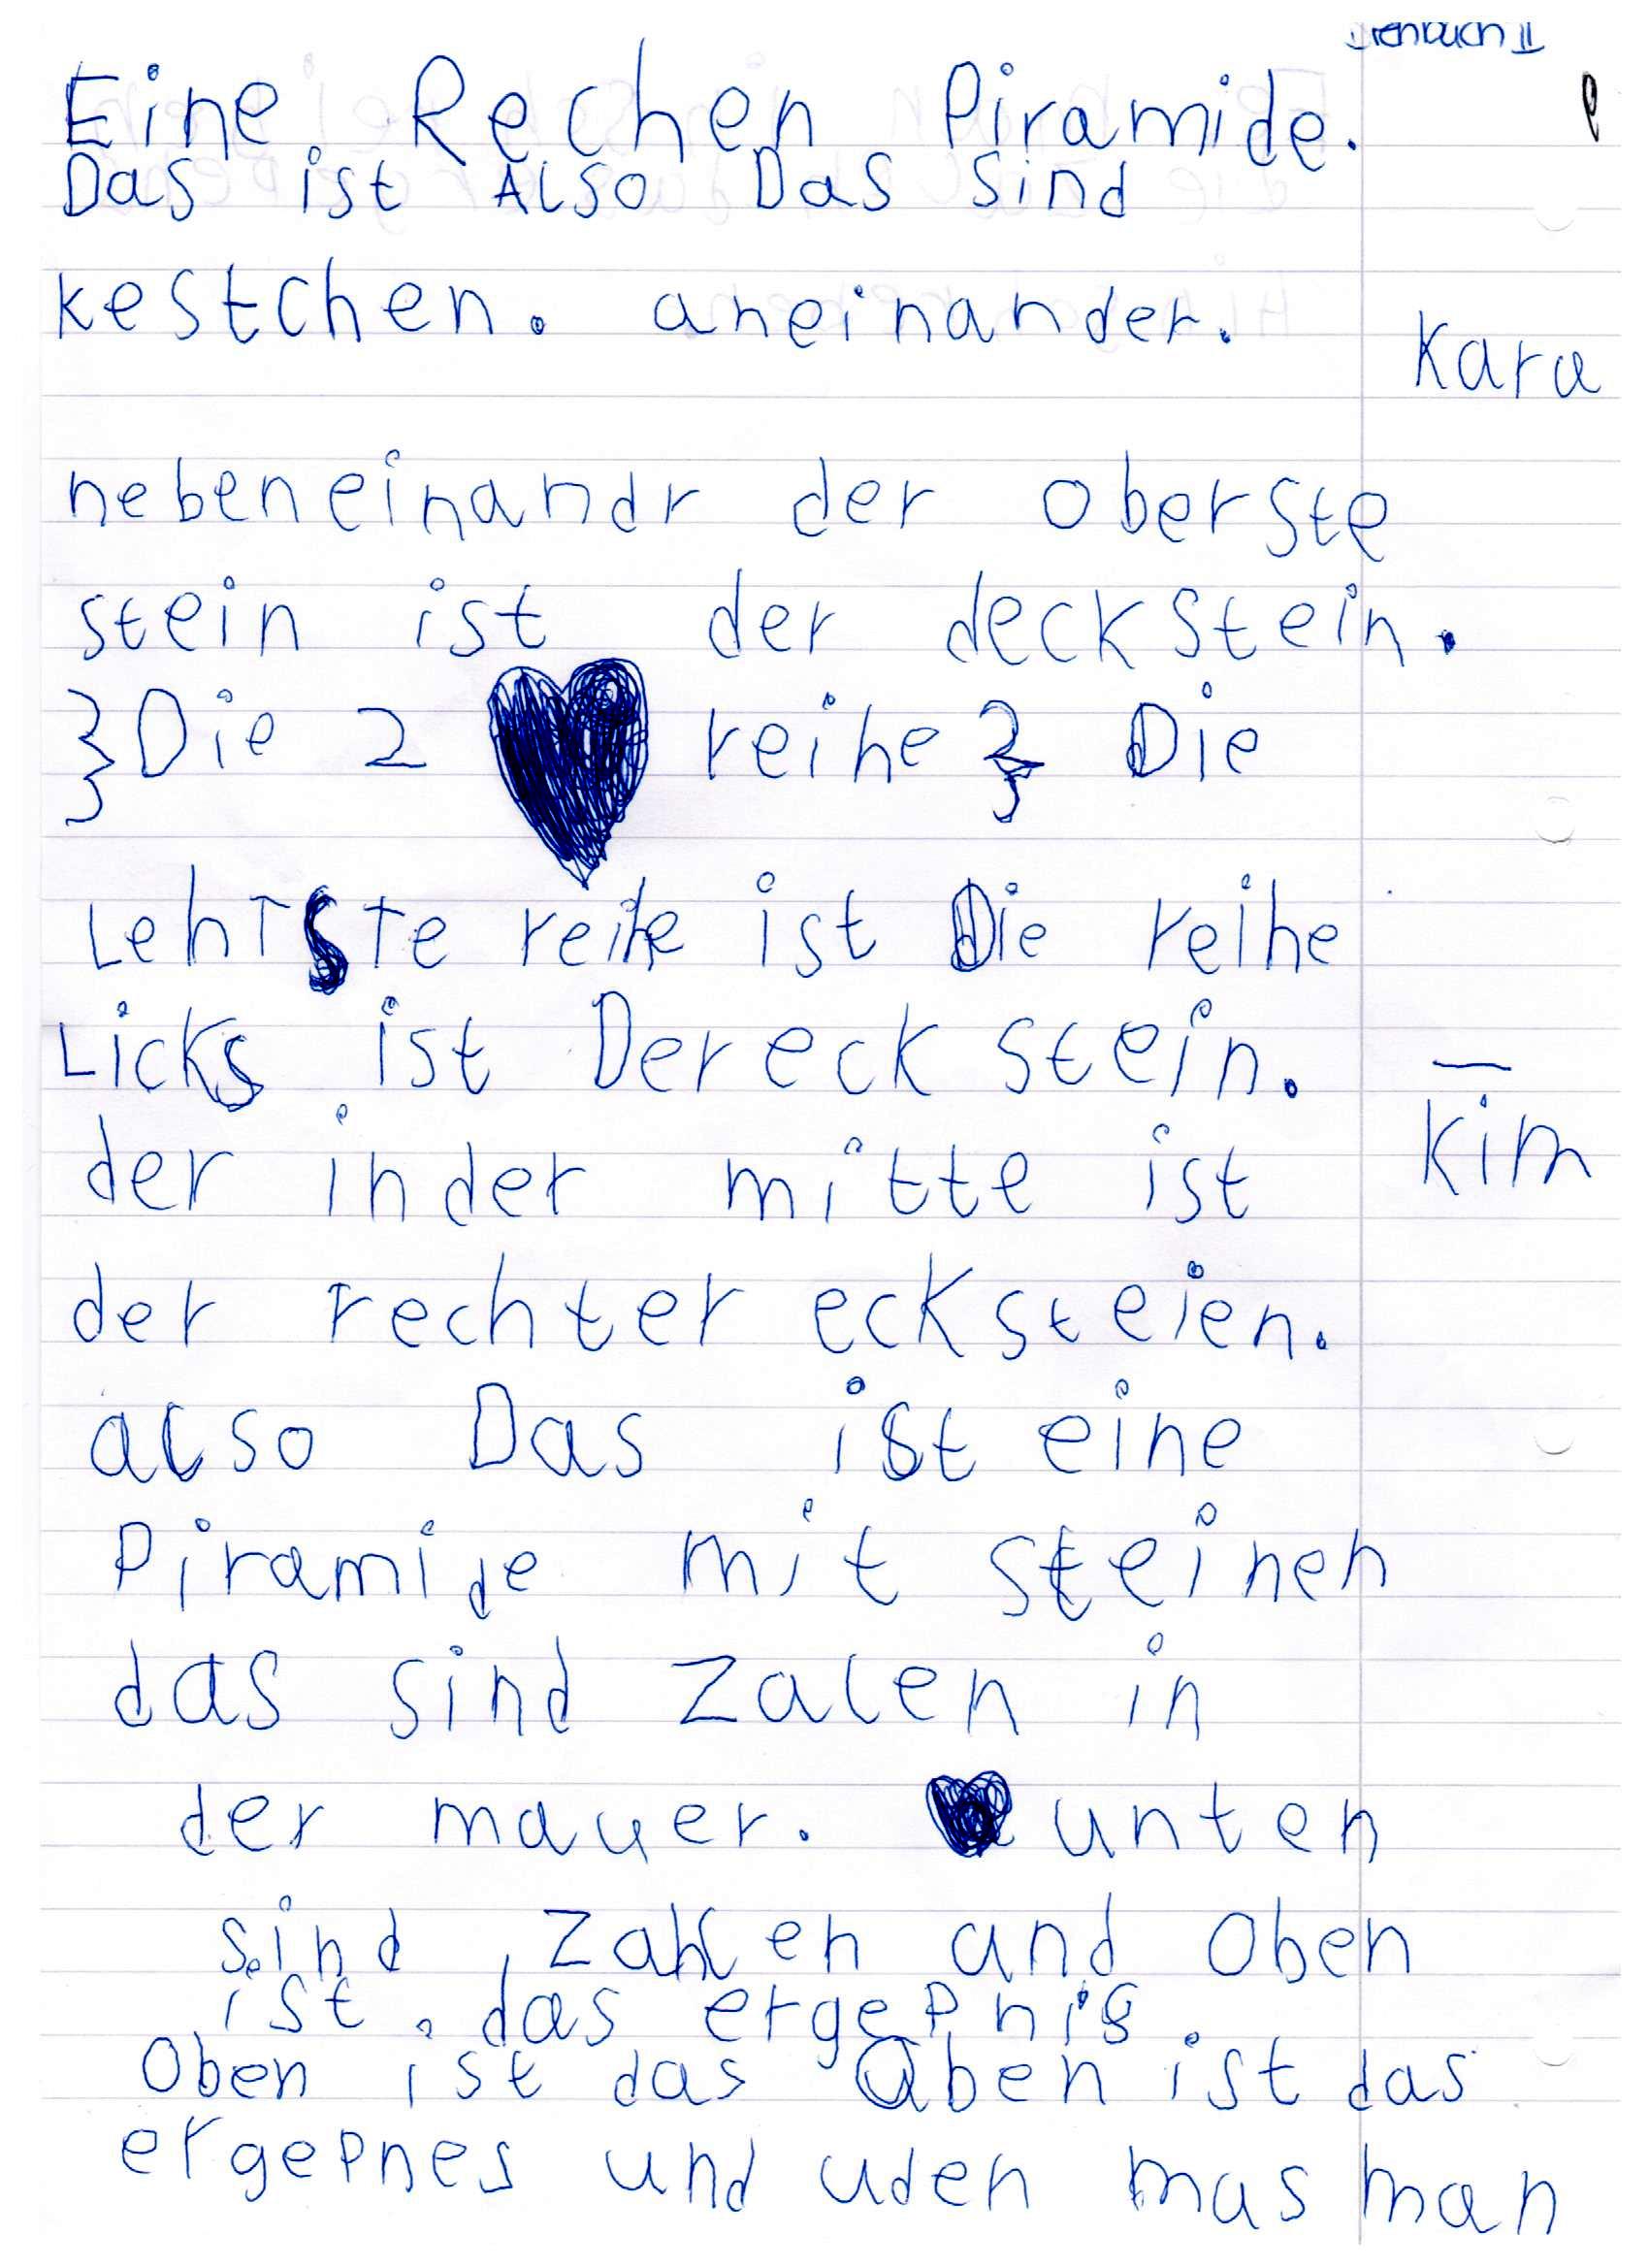 Eine Rechen Piramide.
Das ist Also Das Sind
kestchen. aneinander.
Kara
nebeneinandr der oberste
stein ist der deckstein.
Die 2 reihe 2 Die
LehTSTe reihe ist Die reihe
Licks ist Der eck stein.
der in der mitte ist
Kim
der rechter ecksteien.
also Das ist eine
Piramide mit steinen
das sind zalen in
der mauer. unten
sind zahlen und oben
ist. das ergepnis.
Oben ist das Oben ist das
ergepnes und uden mas man